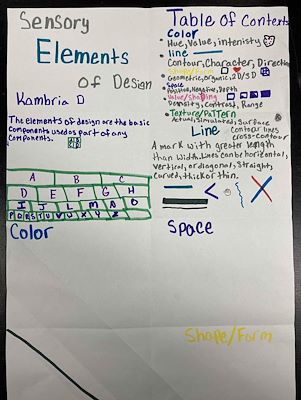 Sensory
Elements
of Design
Kambria D
The elements of design are the basic
components used as part of any
components.
A B C
D E F G H
I J L M
Color
Table of Contents
Color
Hue, Value, intenisty
line
Contour, Character, Direction
Shape/Form
Geometric, Organic, 2D/3D
Space
Positive, Negative, Depth
Value/Shading
Density, Contrast, Range
Texture/Pattern
Actual, Simulated, Surface
Line
Contour lines
cross-contour
A mark with greater length
than width. Lines can be horizontal,
vertical, or diagonal, straight,
Curved, thick or thin.
Space
Shape/Form